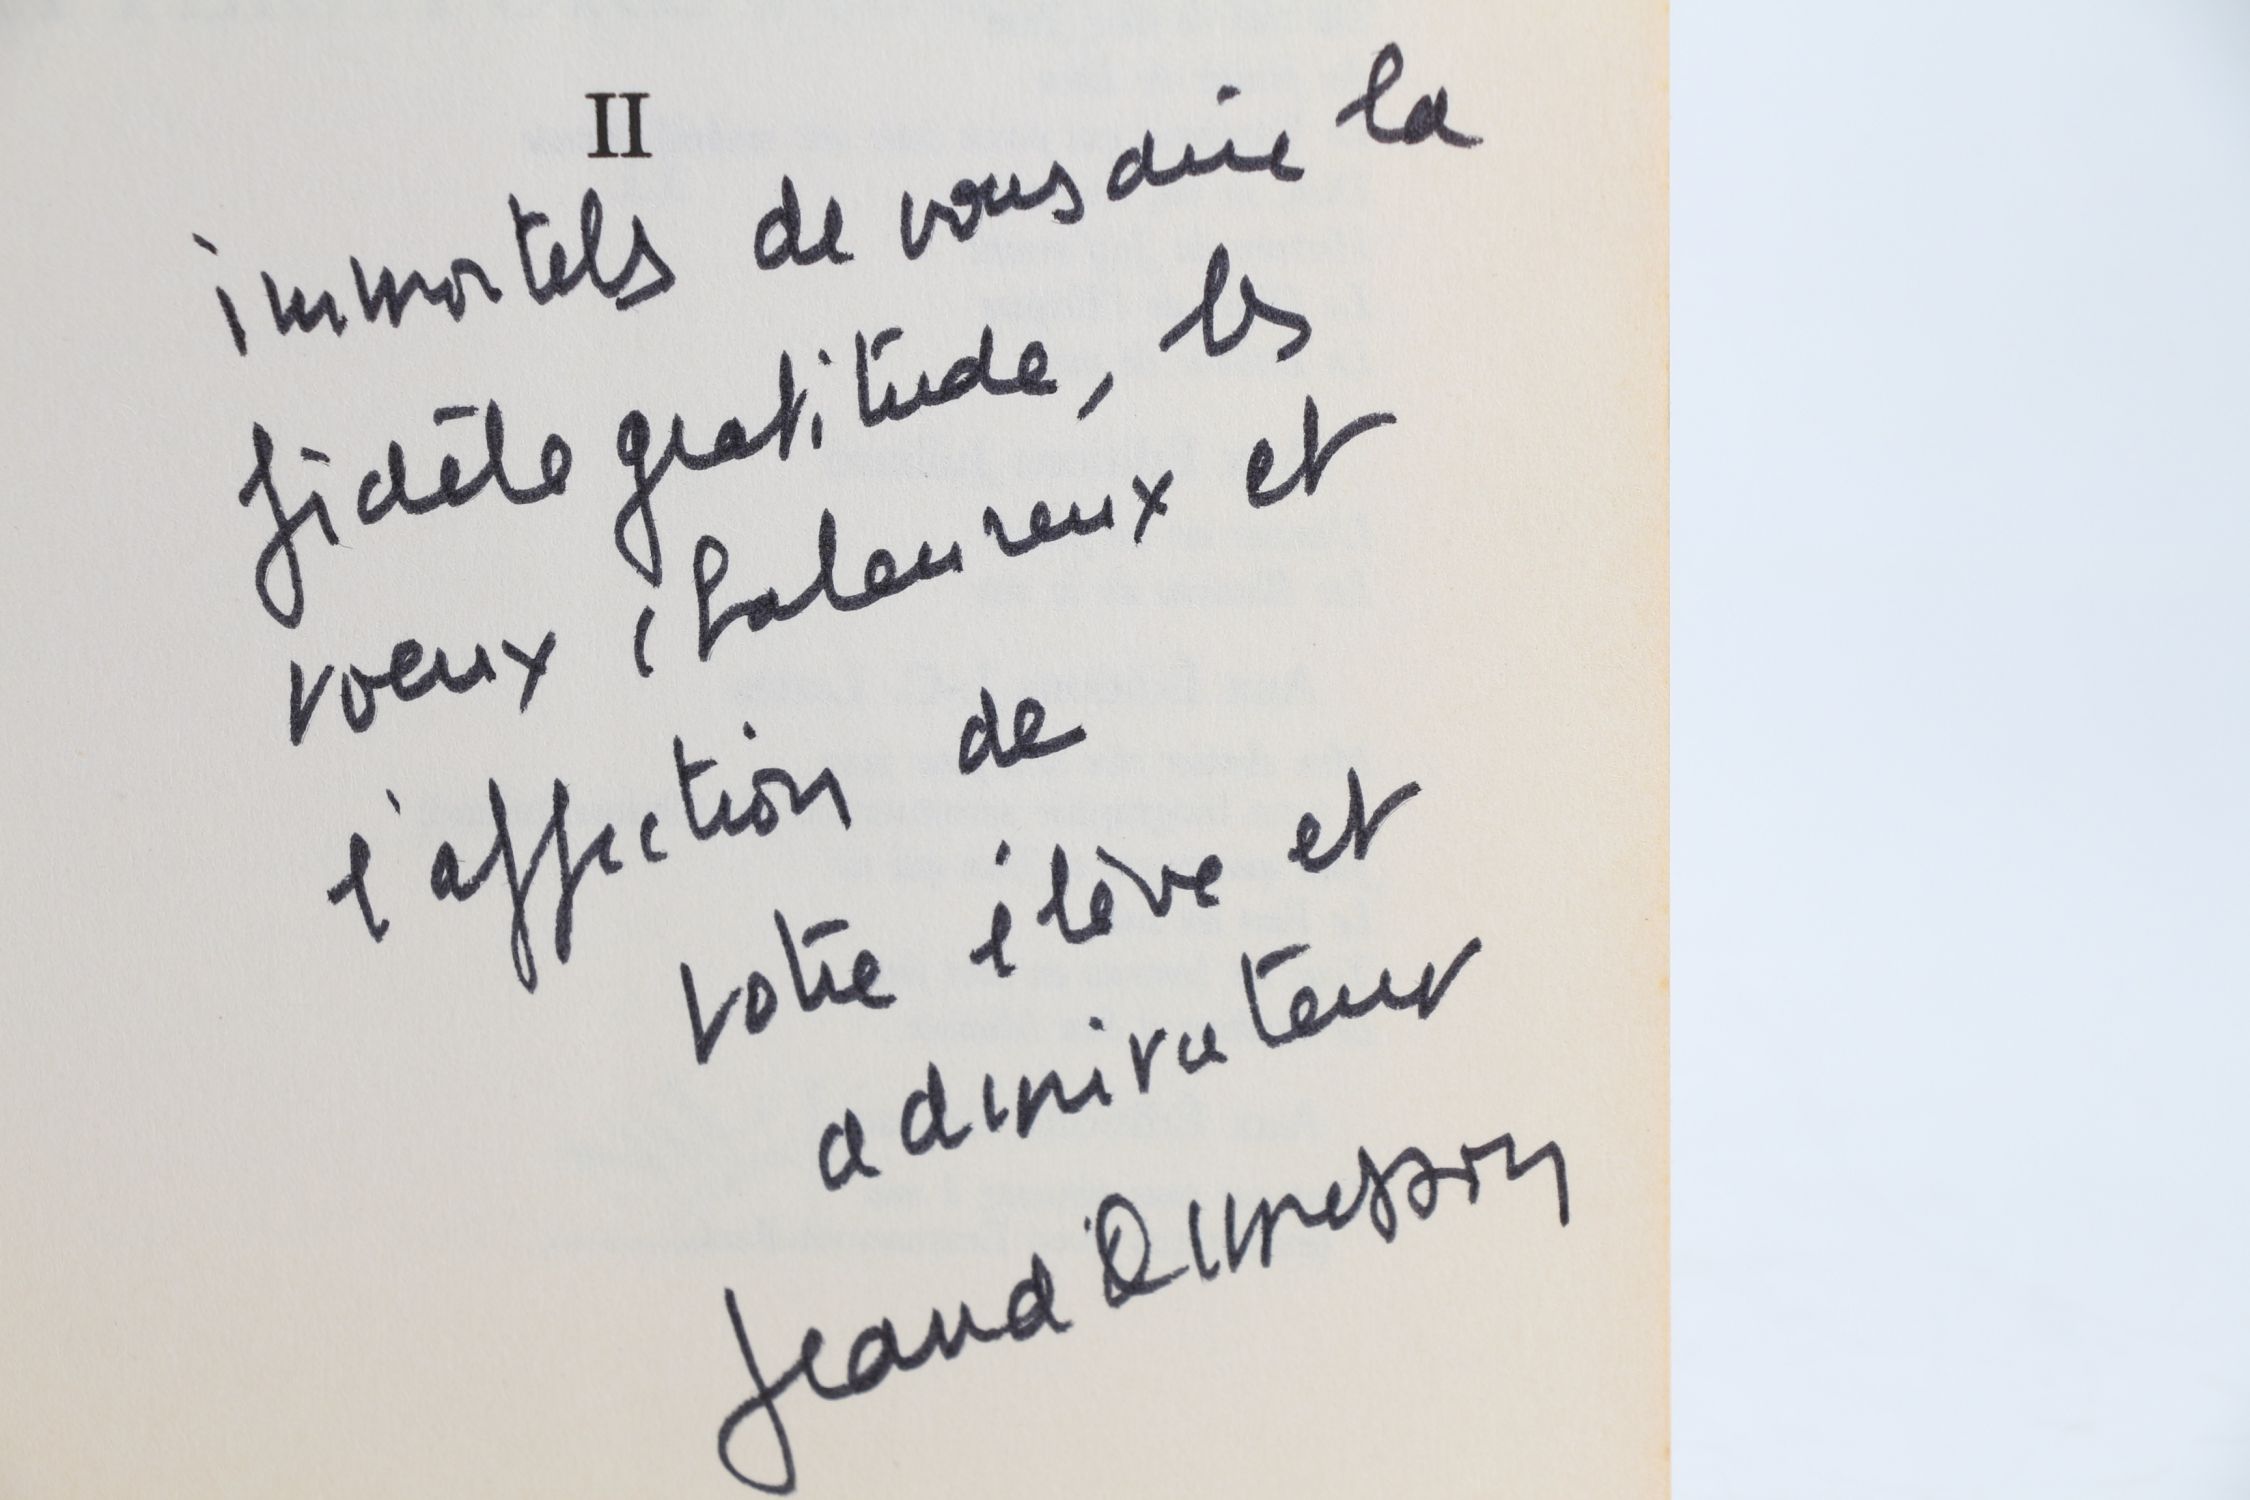 II
immortels de vous dire la
fidèle gratitude, les
voeux chaleureux et
l'affection de
votre élève et
admirateur
Jean d'Ormesson